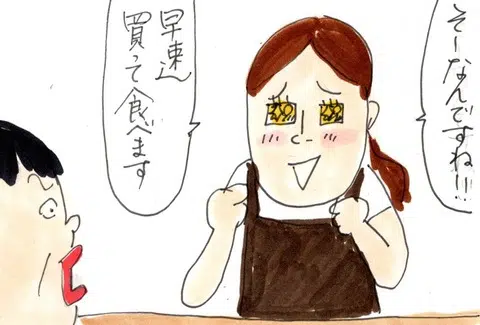 そーなんですね!!!
早速
買って食べます